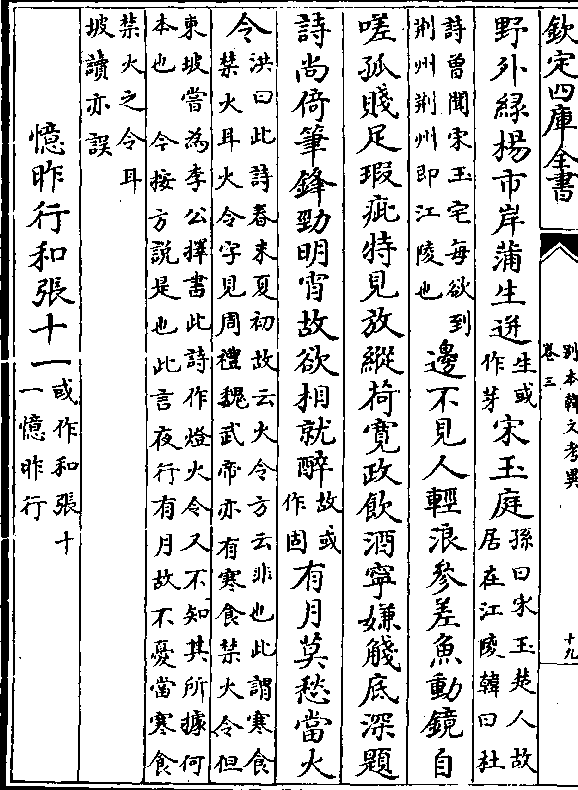 欽定四庫全書
別本韓文考異
卷三
十九
野外緑楊市岸蒲生迸生或作芽宋玉庭孫曰宋玉楚人故居在江陵韓曰杜
詩曽聞宋玉宅每欲到荆州荆州即江陵也邊不見人輕浪參差魚動鏡自
嗟孤賤足瑕疵特見放縱荷寛政飲酒寧嫌觴底深題
詩尚倚筆鋒勁明宵故欲相就醉故或作固有月莫愁當火
令洪曰此詩春末夏初故云火令方云非也此謂寒食禁火耳火令字見周禮魏武帝亦有寒食禁火令但
東坡嘗為李公擇書此詩作燈火令又不知其所據何本也 令按方説是也此言夜行有月故不憂當寒食
禁火之令耳坡讀亦誤
憶昨行和張十一或作和張十一憶昨行